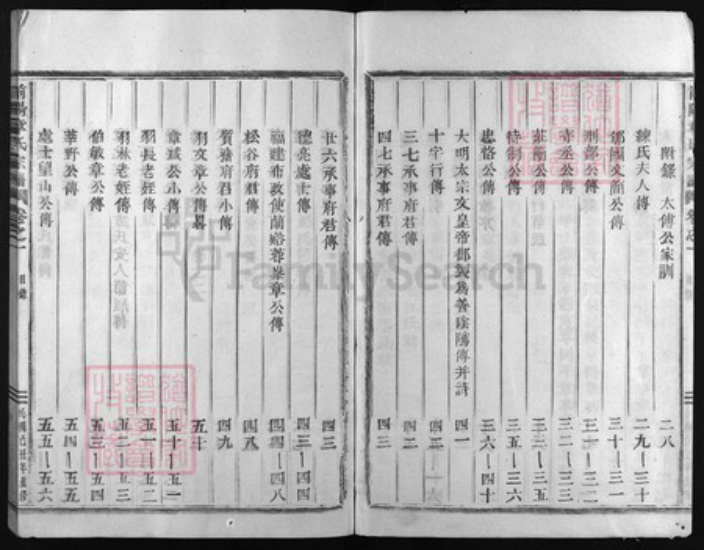 附錄 太傅公家訓 二八
練氏夫人傳 二九—三十
郇國文簡公傳 三十—三一
刑部公傳 三一—三二
寺丞公傳 三二—三三
莊簡公傳 三三—三五
待制公傳 三五—三六
忠恪公傳 三六—四十
大明太宗文皇帝御製爲善陰騭傳并詩 四一
十字行傳 四二
三七承事府君傳 四二
四七承事府君傳 四三
廿六承事府君傳 四三
德亮處士傳 四三—四四
福建布政使蘭谿蓉峯章公傳 四四—四八
松谷府君傳 四八
質菴府君小傳 四九
羽文章公傳畧 五十
章誠公小傳 五十—五一
羽長老姪傳 五一—五二
羽淋老姪傳 五二—五三
伯敏章公傳 五三—五四
華野公傳 五四—五五
處士望山公傳 五五—五六
章氏宗譜 卷之一 目錄
FamilySearch